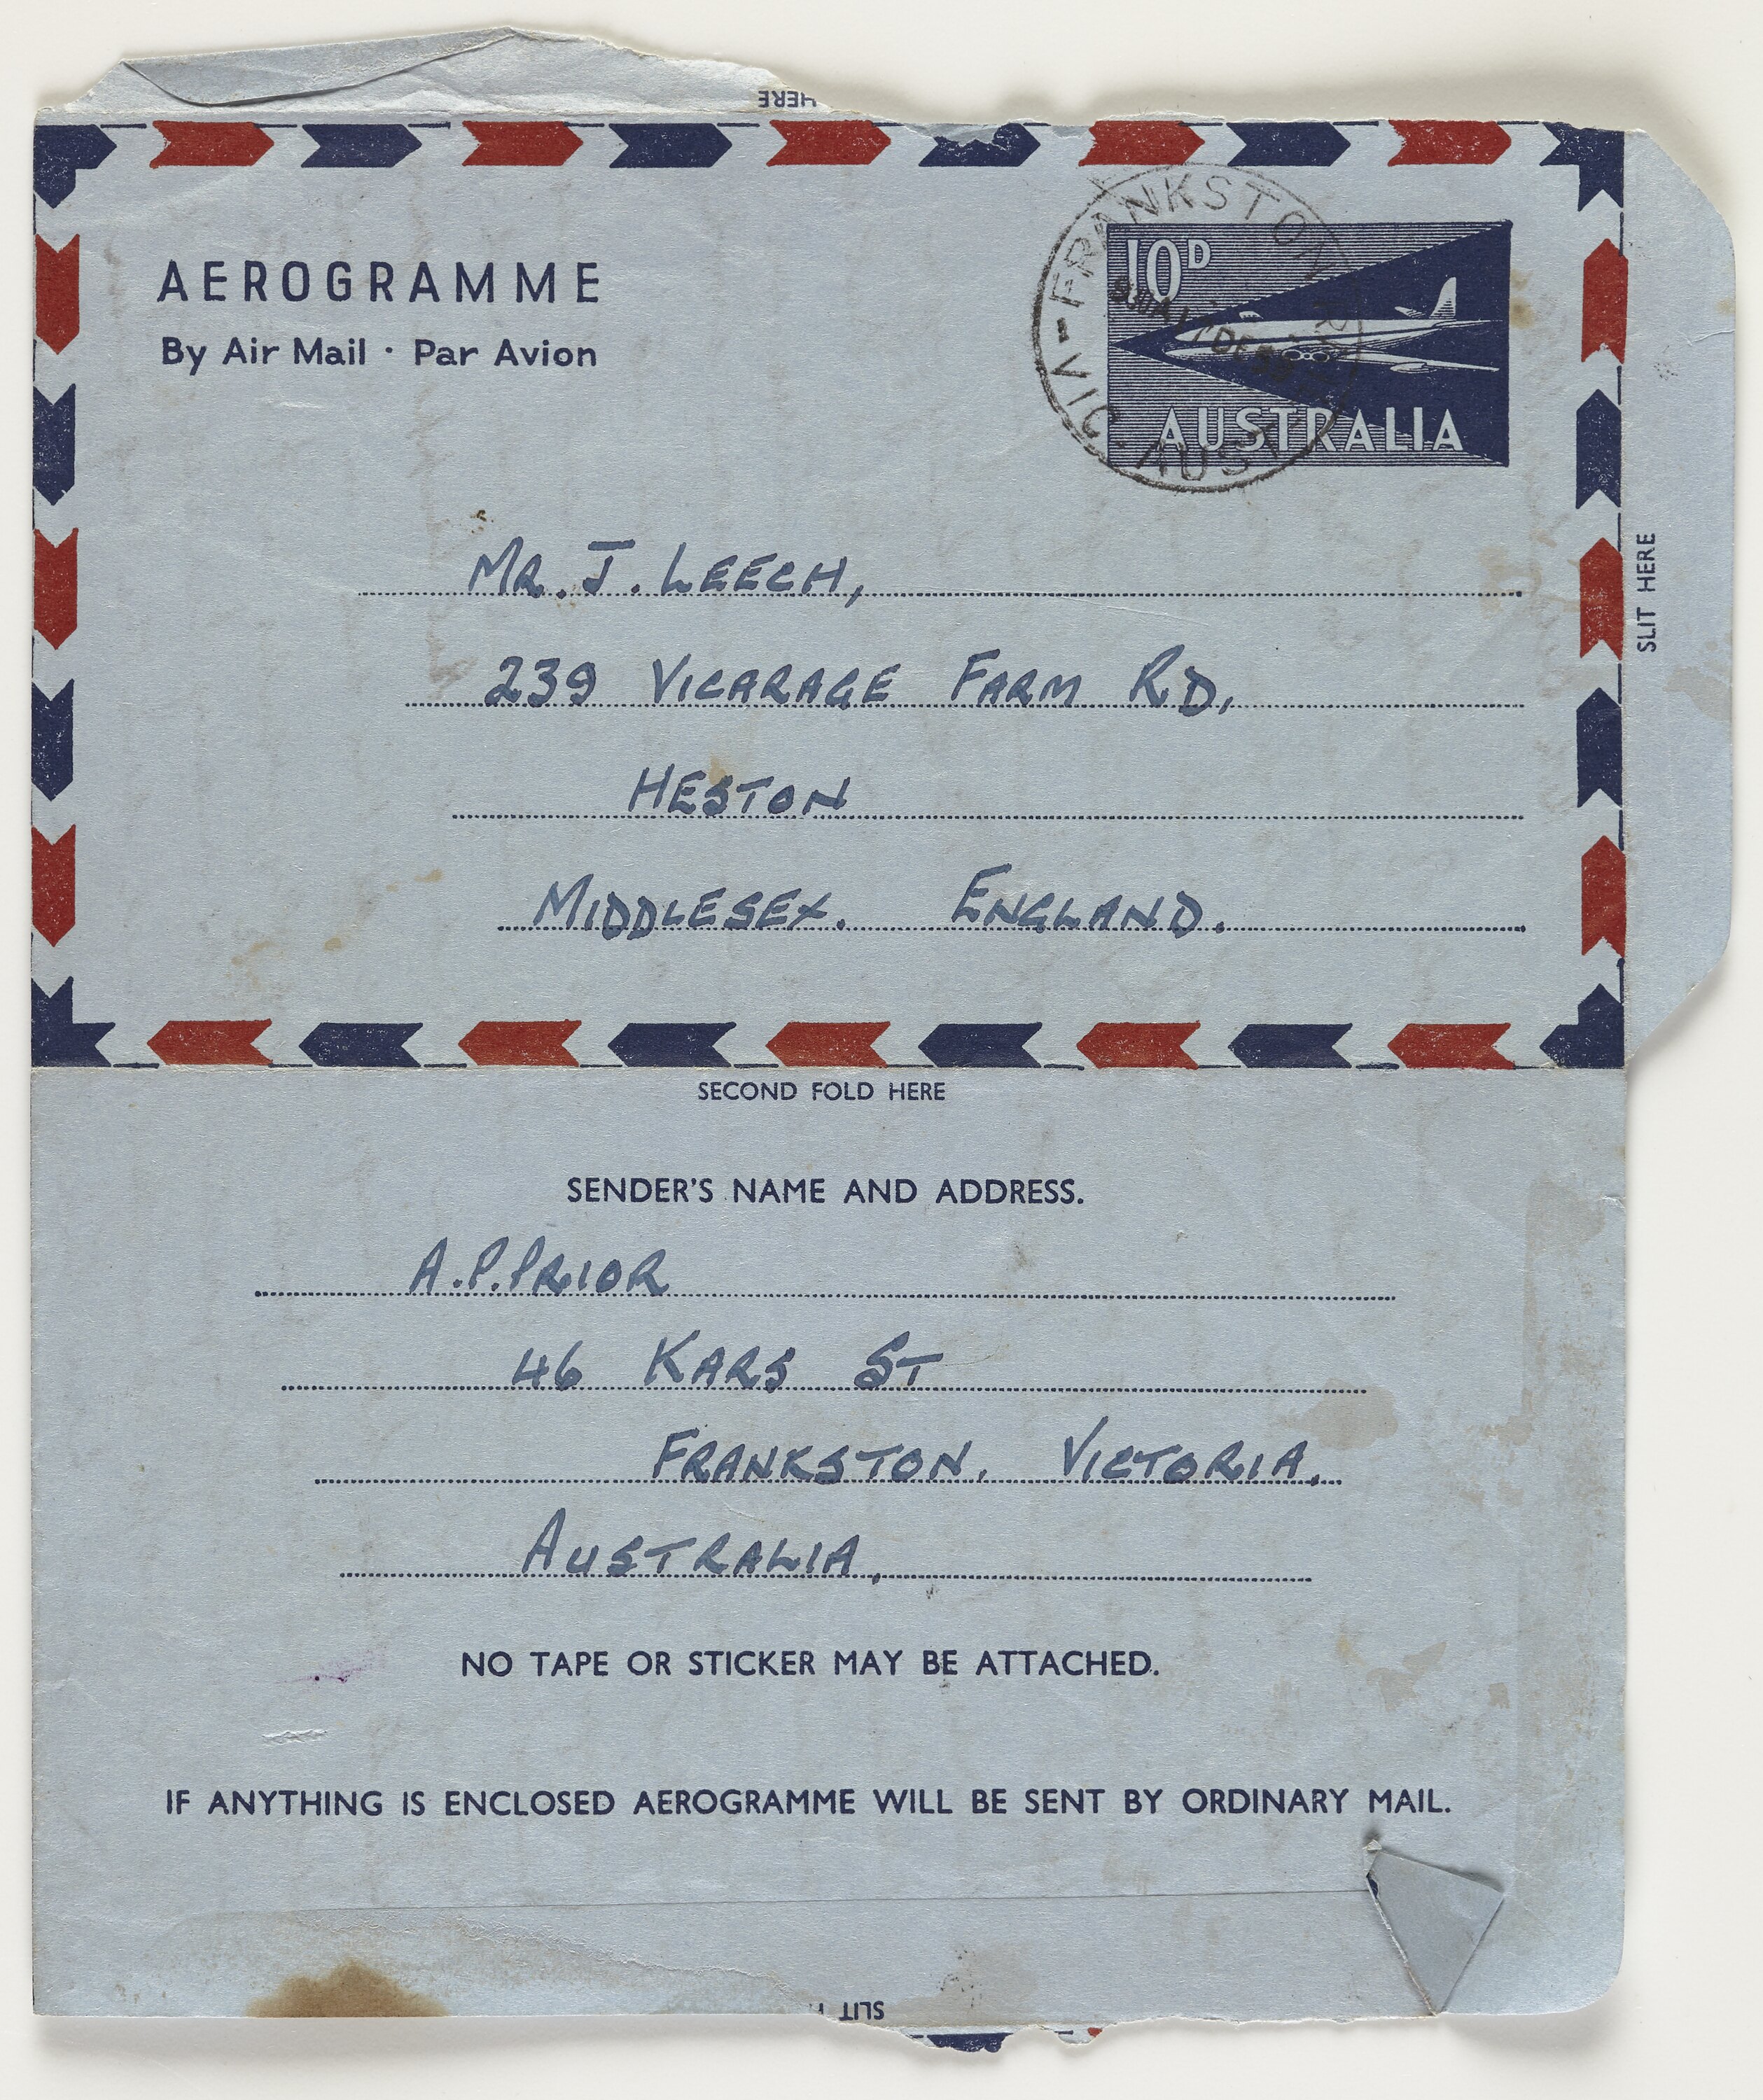 HERE
AEROGRAMME
By Air Mail · Par Avion
FRANKSTON
VIC. AUST
10D
AUSTRALIA
MR. J. LEECH,
239 VICARAGE FARM RD,
HESTON
MIDDLESEX. ENGLAND.
SLIT HERE
SECOND FOLD HERE
SENDER'S NAME AND ADDRESS.
A.P. PRIOR
46 KARS ST
FRANKSTON, VICTORIA.
AUSTRALIA,
NO TAPE OR STICKER MAY BE ATTACHED.
IF ANYTHING IS ENCLOSED AEROGRAMME WILL BE SENT BY ORDINARY MAIL.
SLIT